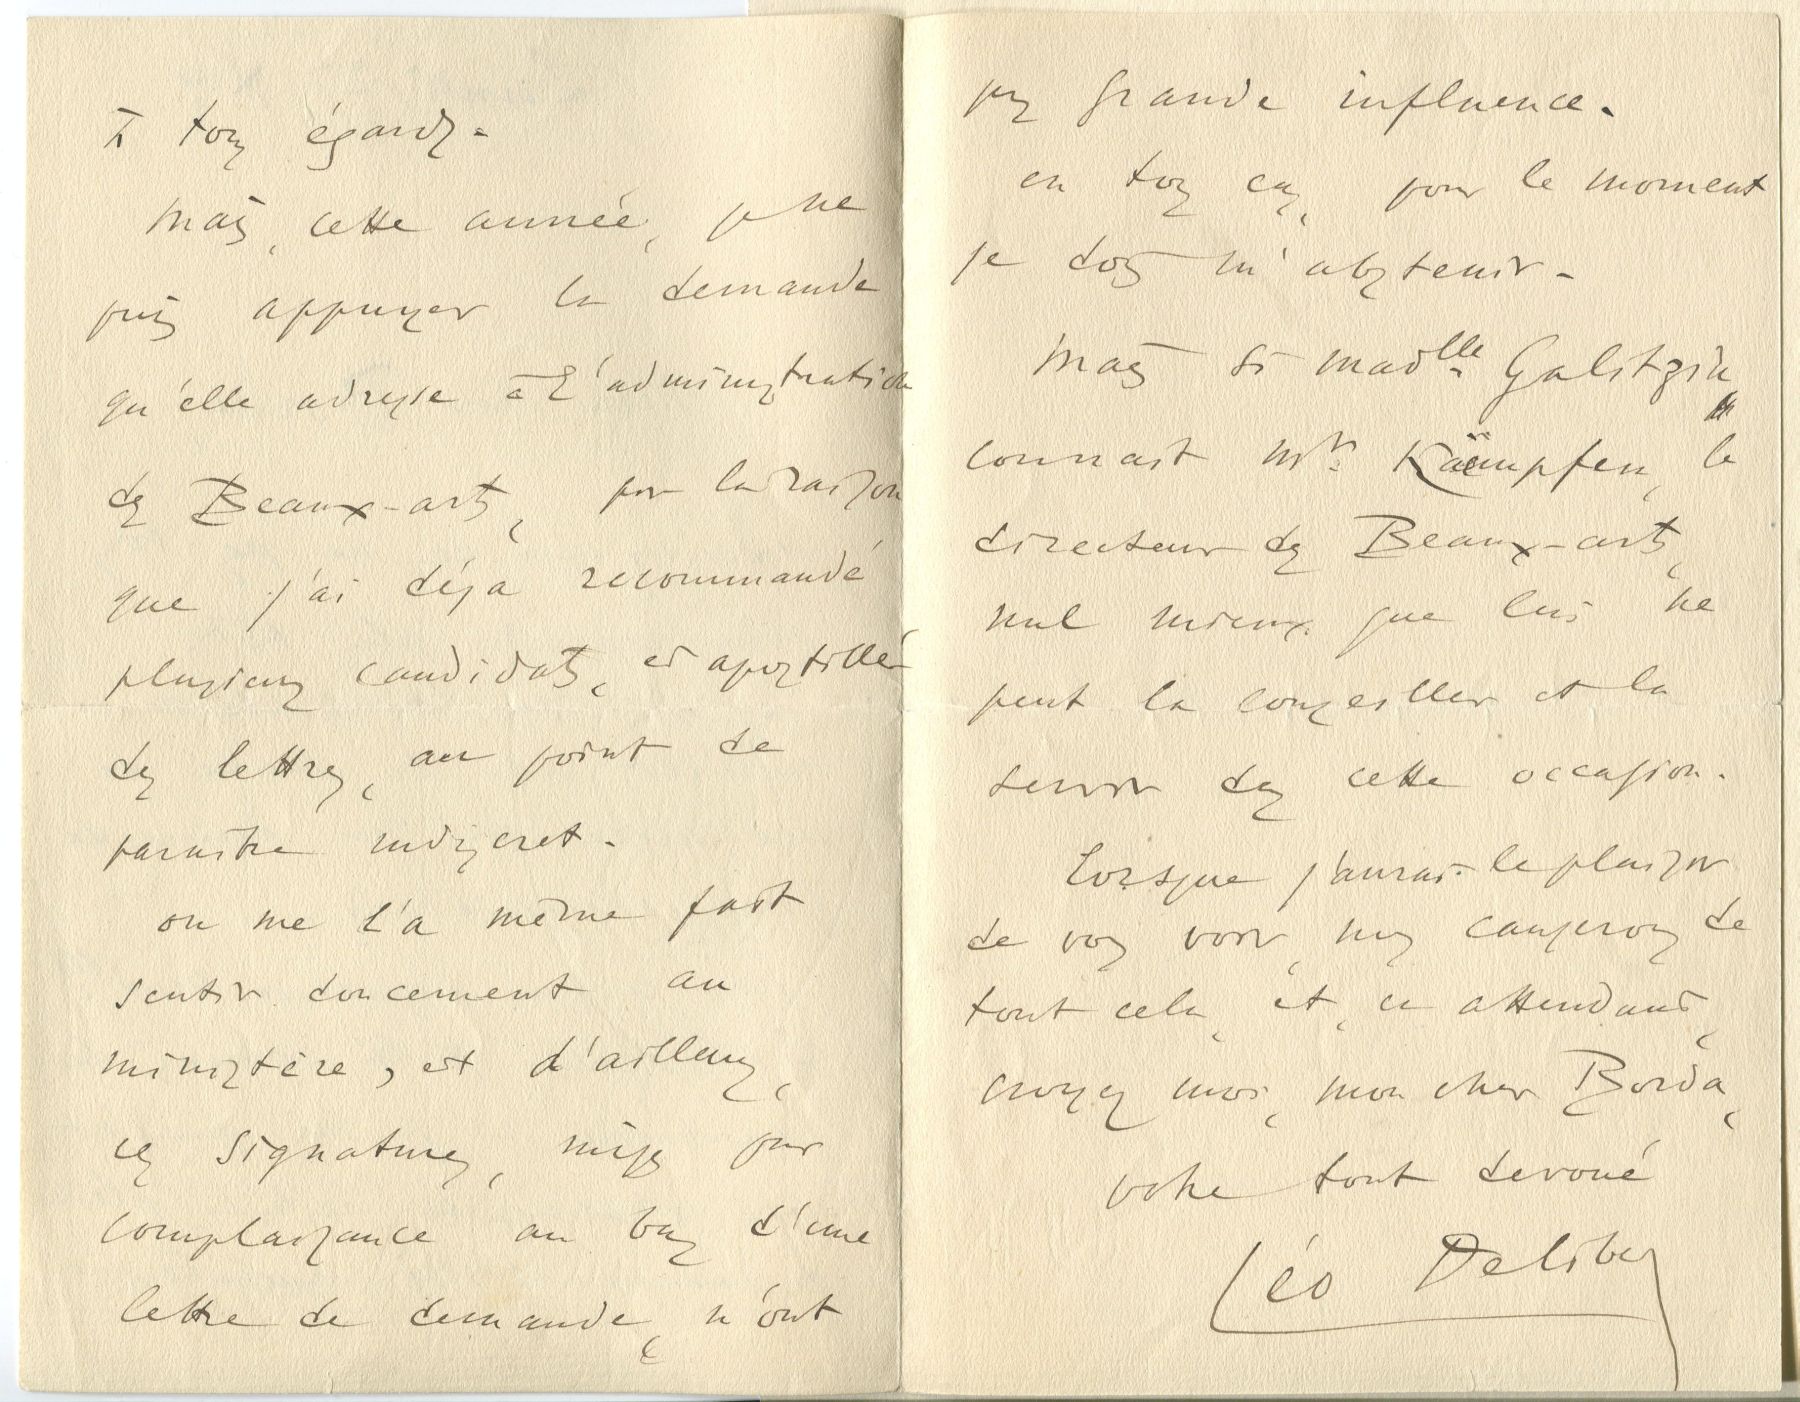 à tous égards.
Mais, cette année, je ne
puis appuyer la demande
qu'elle adresse à l'administration
des Beaux-arts, par la raison
que j'ai déjà recommandé
plusieurs candidats, et apostillé
des lettres, au point de
paraître indiscret.
on me l'a même fait
sentir doucement au
ministère, et d'ailleurs,
ces signatures, mises par
complaisance au bas d'une
lettre de demande, n'ont
pas grande influence.
en tous cas, pour le moment
je dois m'abstenir.
Mais si Mad^lle. Galitzin
connait M^r. Kaempfen, le
directeur des Beaux-arts,
nul mieux que lui ne
peut la conseiller et la
servir dans cette occasion.
Lorsque j'aurai le plaisir
de vous voir, nous causerons de
tout cela, et, en attendant,
croyez moi, mon cher Borda,
votre tout dévoué
Léo Delibes